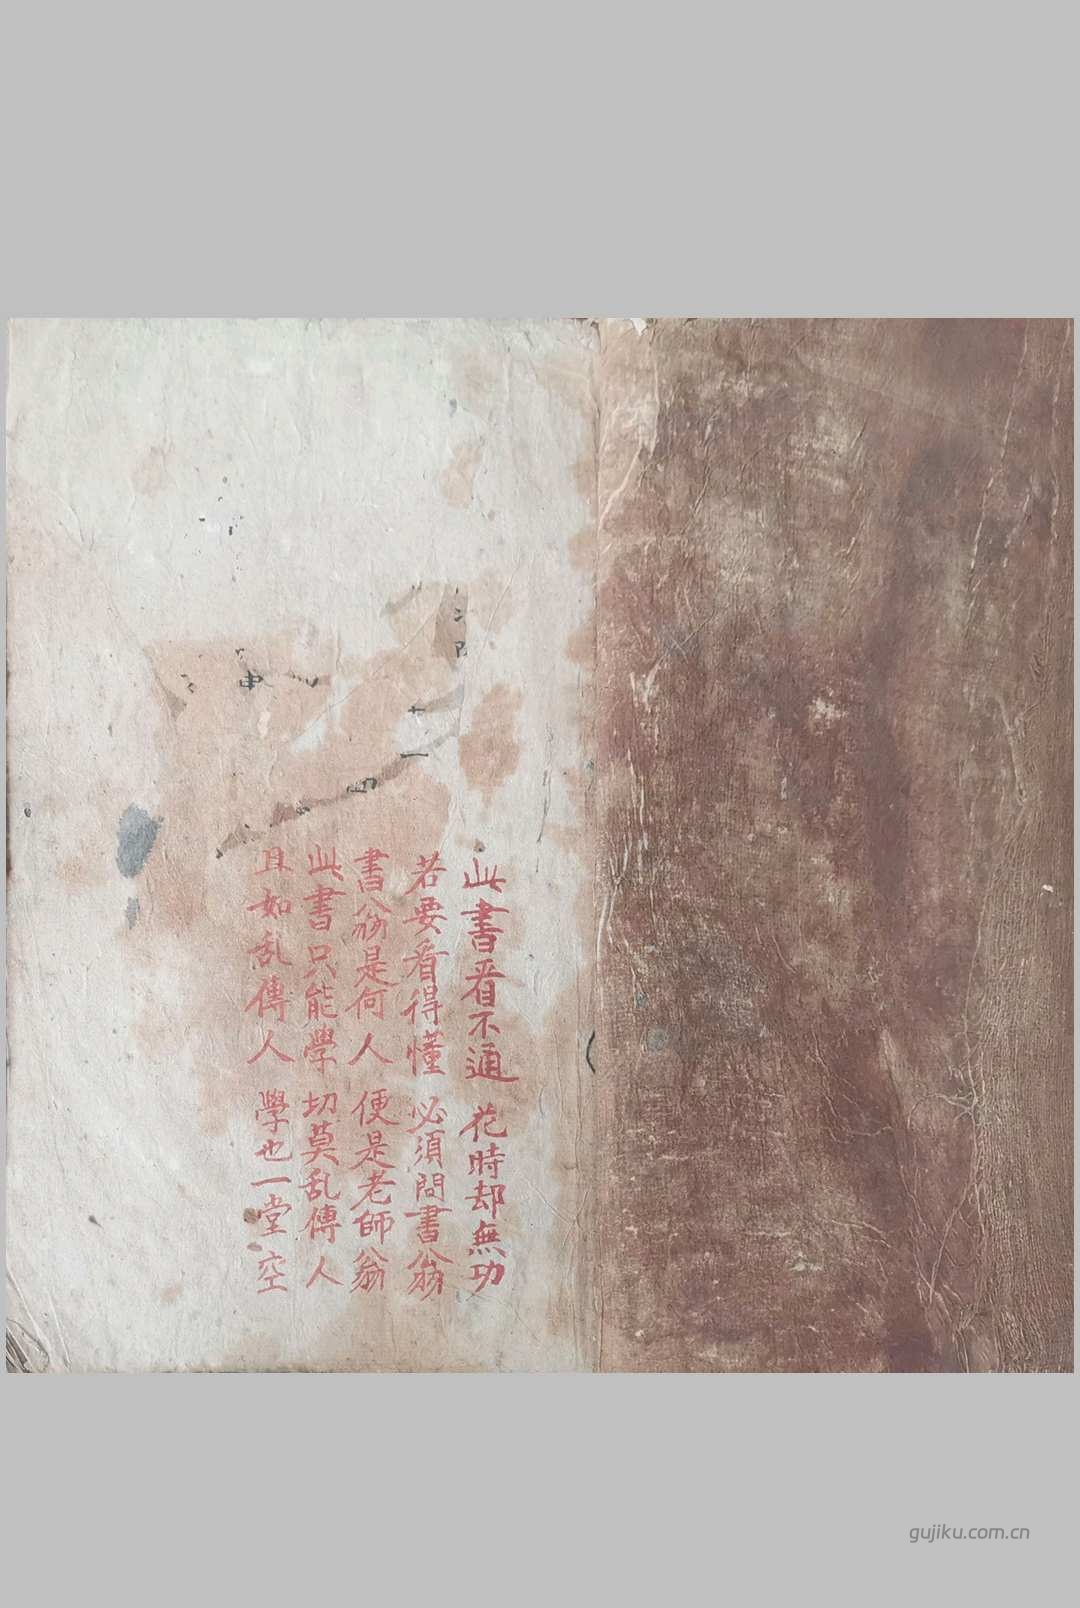 此書看不通 花時却無功
若要看得懂 必須問書翁
書翁是何人 便是老師翁
此書只能學 切莫乱傳人
且如乱傳人 學也一堂空
gujiku.com.cn